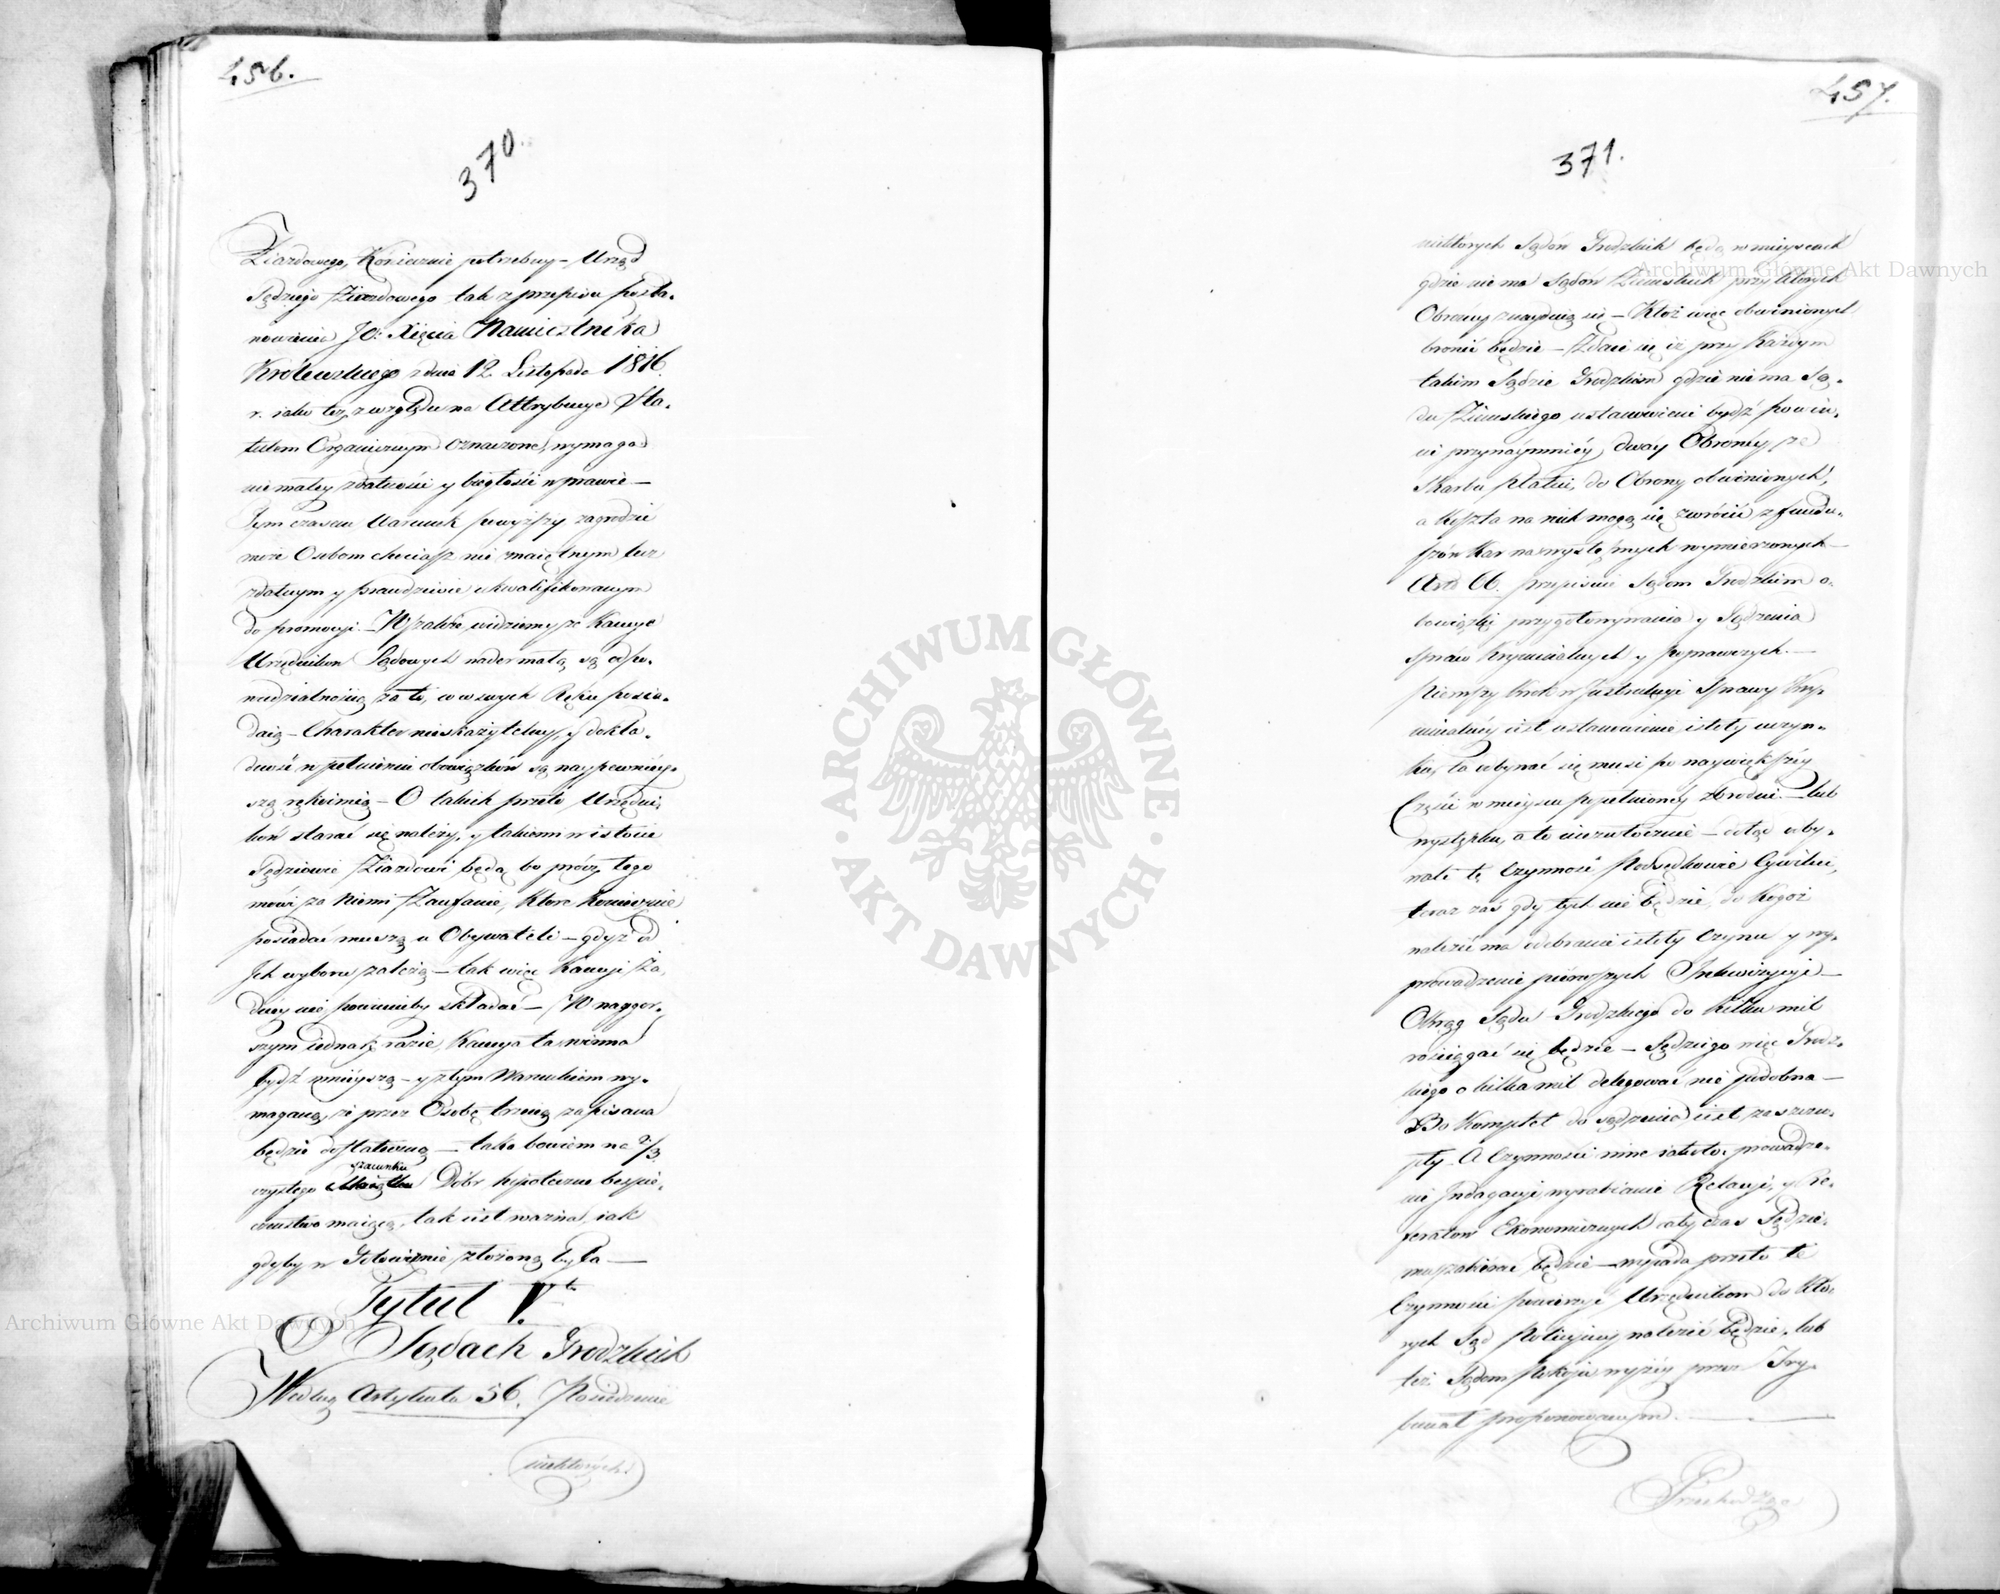 456.
370.
Ziazdowego, Koniecznie potrzebny – Urząd
Sędziego Ziazdowego tak z przepisu posta-
nowienia JO: Xięcia Namiestnika
Królewskiego z dnia 12. Listopada 1816.
r. iako też, z względu na Attrybucye Sta-
tutem Organicznym oznaczone, wymaga
nie małey zdatności y biegłości w prawie –
Tym czasem Warunek powyższy zagrodzić
może Osobom chociasz nie maiętnym lecz
zdatnym y prawdziwie ukwalifikowanym
do promocyi. – Wszakże widziemy że Kaucye
Urzędników Sądowych nader małą są odpo-
wiedzialnością za to, co w swych Ręku posia-
daią – Charakter nieskazytelny, y dokła-
dność w pełnieniu obowiązków są naypewniey-
szą rękoimią – O takich przeto Urzędni-
ków starać się należy, y takiemi w istocie
Sędziowie Ziazdowi będą, bo prócz tego
mówi za Niemi Zaufanie, które koniecznie
posiadać muszą u Obywateli – gdyż od
Ich wyboru zależą – tak więc Kaucyi ża-
dney nie powinniby składać – W naygor-
szym iednak Razie, Kaucya ta winna
bydź mnieysza – y z tym Warunkiem wy-
maganą, że przez Osobę trzecią zapisana
będzie dostateczną – taka bowiem na 2/3
szacunku
czystego Dóbr hipoteczne bespie-
czeństwo maiąca, tak iest ważna, iak
gdyby w Gotowiznie złożoną była –
Tytuł V.ty
O Sądach Grodzkich
Według Artykułu 56. Posiedzenie
niektórych
457.
371.
niektórych Sądów Grodzkich będą w mieyscach
gdzie nie ma Sądów Ziemskich przy których
Obrońcy znayduią się – Któż więc obwinionych
bronić będzie – Zdaie się iż przy Każdym
takim Sądzie Grodzkim gdzie nie ma Są-
du Ziemskiego ustanowieni bydź powin-
ni przynaymniey dway Obrońcy ze
Skarbu Płatni, do Obrony obwinionych,
a Koszta na nich mogą się zwrócić z fundu-
szów Kar na występnych wymierzonych –
Art: 66. przepisuie Sądom Grodzkim o-
bowiązki przygotowywania y Sądzenia
Spraw Kryminalnych y poprawczych. –
Pierwszy krok w Jnstrukcyi Sprawy Kry-
minalney iest ustanowienie istoty uczyn-
ku, to odbywać się musi po naywiększey
Części w mieyscu popełnioney zbrodni – lub
występku, a to niezwłocznie – dotąd odby-
wali tę Czynność Podsędkowie Cywilni,
teraz zaś gdy tych nie będzie, do kogoż
należeć ma odebranie istoty Czynu y wy-
prowadzenie pierwszych Jnkwizycyi –
Okrąg Sądu Grodzkiego do kilku mil
rościągać się będzie – Sędziego więc Grodz-
kiego o kilka mil delegować nie podobna –
Bo Komplet do sądzenia iest za szczu-
pły – A Czynności inne iako to, prowadze-
nie Jndagacyi, wyrabianie Relacyi, y Re-
feratów Ekonomicznych cały czas Sędzie-
mu zabierać będzie – wypada przeto te
Czynności powierzyć Urzędnikom do któ-
rych Sąd Policyiny należeć będzie, lub
też Sądom Pokoiu wyżey przez Try-
bunał proponowanym. –
Przechodząc